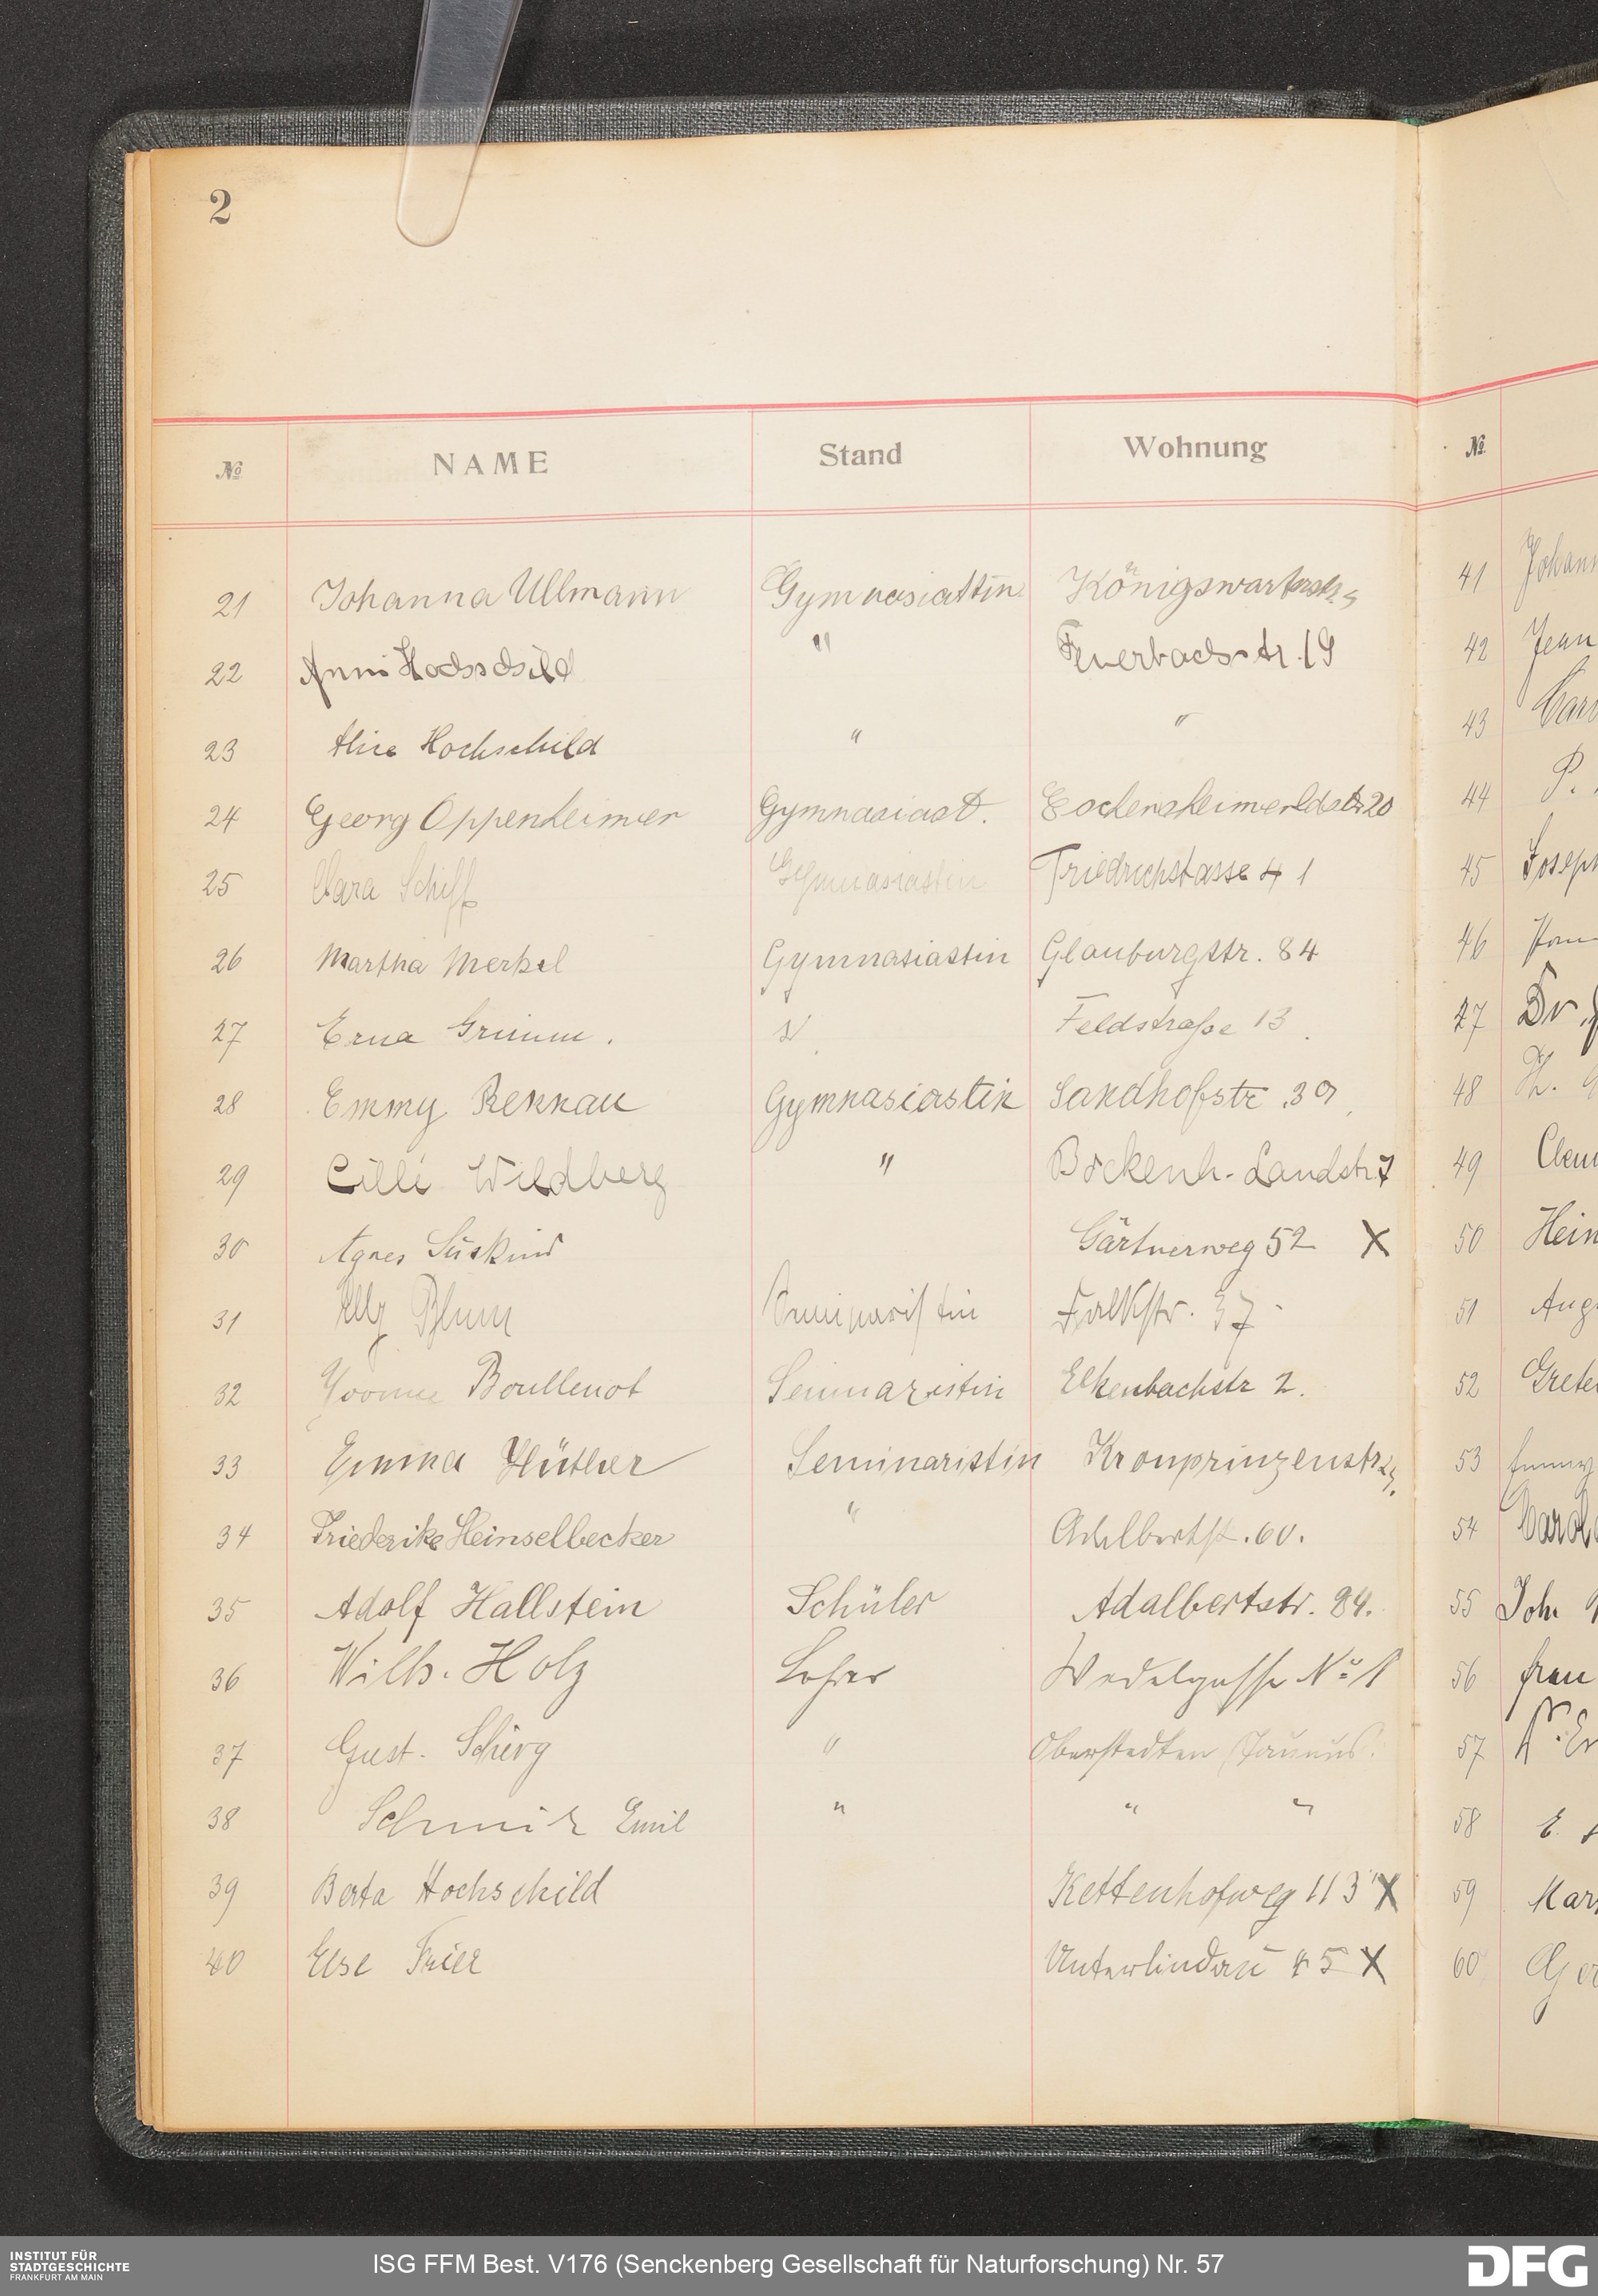 2
№ NAME Stand Wohnung
21 Johanna Ullmann Gymnasiastin Königswarterstr. 5
22 Anni Hochschild " Feuerbachstr. 19
23 Alice Hochschild " "
24 Georg Oppenheimer Gymnasiast. Eschersheimerldstr 20
25 Clara Schiff Gymnasiastin Friedrichstasse 41
26 Martha Merkel Gymnasiastin Glauburgstr. 84
27 Erna Grimm. " Feldstraße 13.
28 Emmy Rennau Gymnasiastin Sandhofstr. 39
29 Cilli Wildberg " Bockenh. Landstr. 7
30 Agnes Süskind Gärtnerweg 52 X
31 Elly Blum Seminaristin Falkstr. 37.
32 Yvonne Boullenot Seminaristin Elkenbachstr 2.
33 Emma Hüther Seminaristin Kronprinzenstr
34 Friederike Heinselbecker " Adalbertst. 60.
35 Adolf Hallstein Schüler Adalbertstr. 84.
36 Wilh. Holz Lehrer Wedelgasse No 1
37 Gust. Schirg " Oberstedten Taunus.
38 Schmik Emil " " "
39 Berta Hochschild Kettenhofweg 113 X
40 Else Unterlindau 45 X
№
41 Johann
42 Jean
43
44 P.
45 Joseph
46
47 Dr.
48
49 Clem
50 Hein
51 Aug
52 Grete
53 Emmy
54 Carol
55 Joh.
56 Frau
57
58 E.
59 Mar
60
INSTITUT FÜR
STADTGESCHICHTE
FRANKFURT AM MAIN
ISG FFM Best. V176 (Senckenberg Gesellschaft für Naturforschung) Nr. 57
DFG